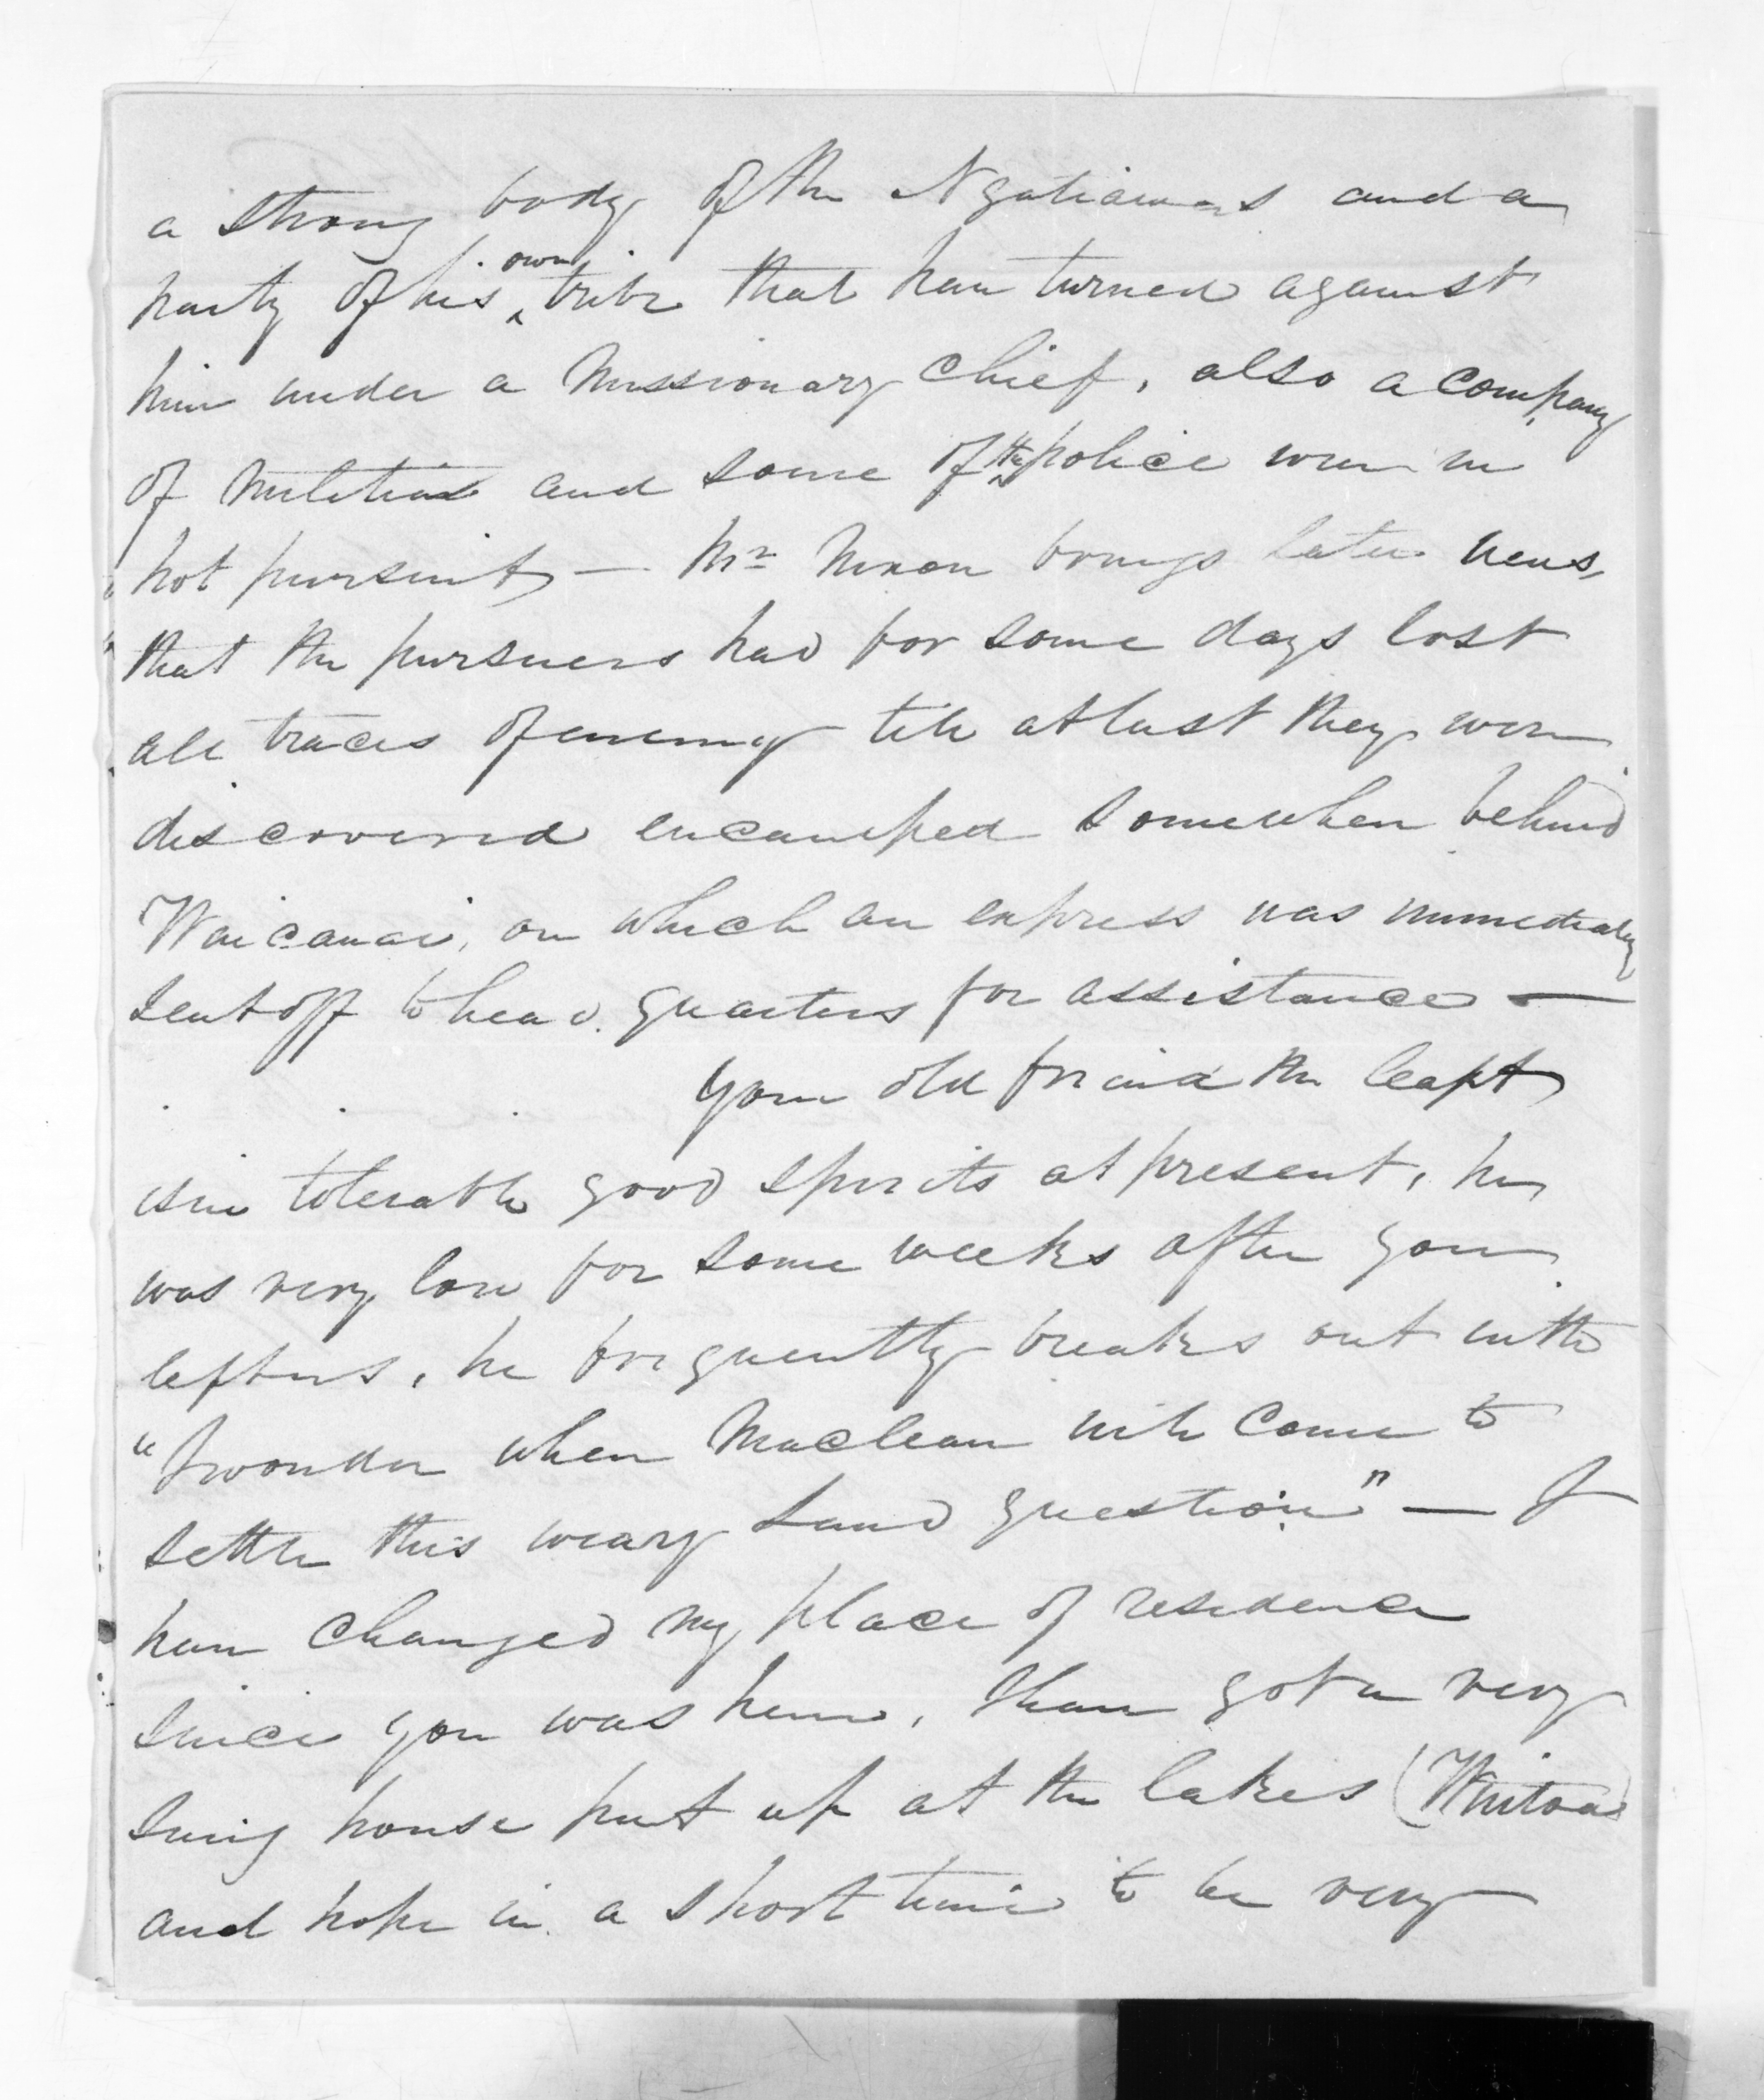 a strong body of the Ngatiawas and a
party of his own tribe that have turned against
him under a Missionary Chief, also a Company
of Militia and some of the police were in
hot pursuit — Mr Nixon brings later news,
that the pursuers had for some days lost
all traces of enemy till at last they were
discovered encamped somewhere behind
Waicanai, on which an express was immediately
sent off to head quarters for assistance —
Your old friend the Capt
is in tolerable good spirits at present, he
was very low for some weeks after you
left us, he frequently breaks out with
"I wonder when Maclean will come to
settle this weary Land question" — I
have changed my place of residence
since you was here, I have got a very
snug house put up at the lakes (
and hope in a short time to be very